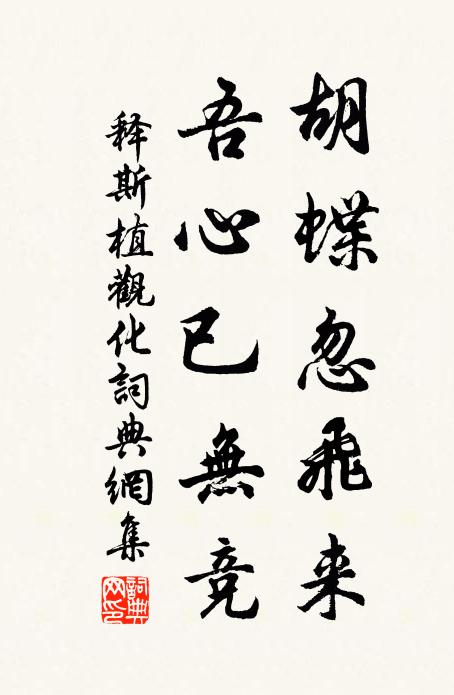 胡蝶忽飛来
吾心已無竞
释斯植觀化詞典網集
詞典網印